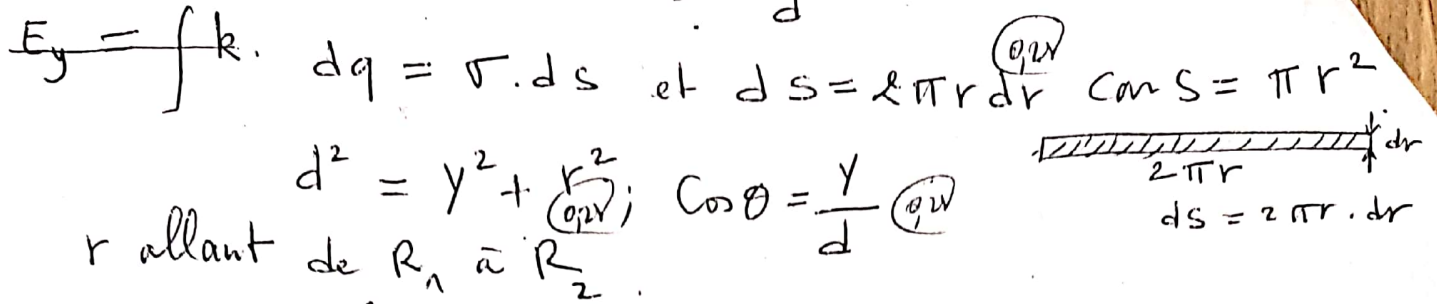 d
E_y = ∫ k. dq = σ.ds et ds = 2πr dr (0,25) car S = πr²
dr
2πr
d² = y² + r² (0,25) ; Cos θ = y/d (0,25)
ds = 2πr.dr
r allant de R₁ à R₂.